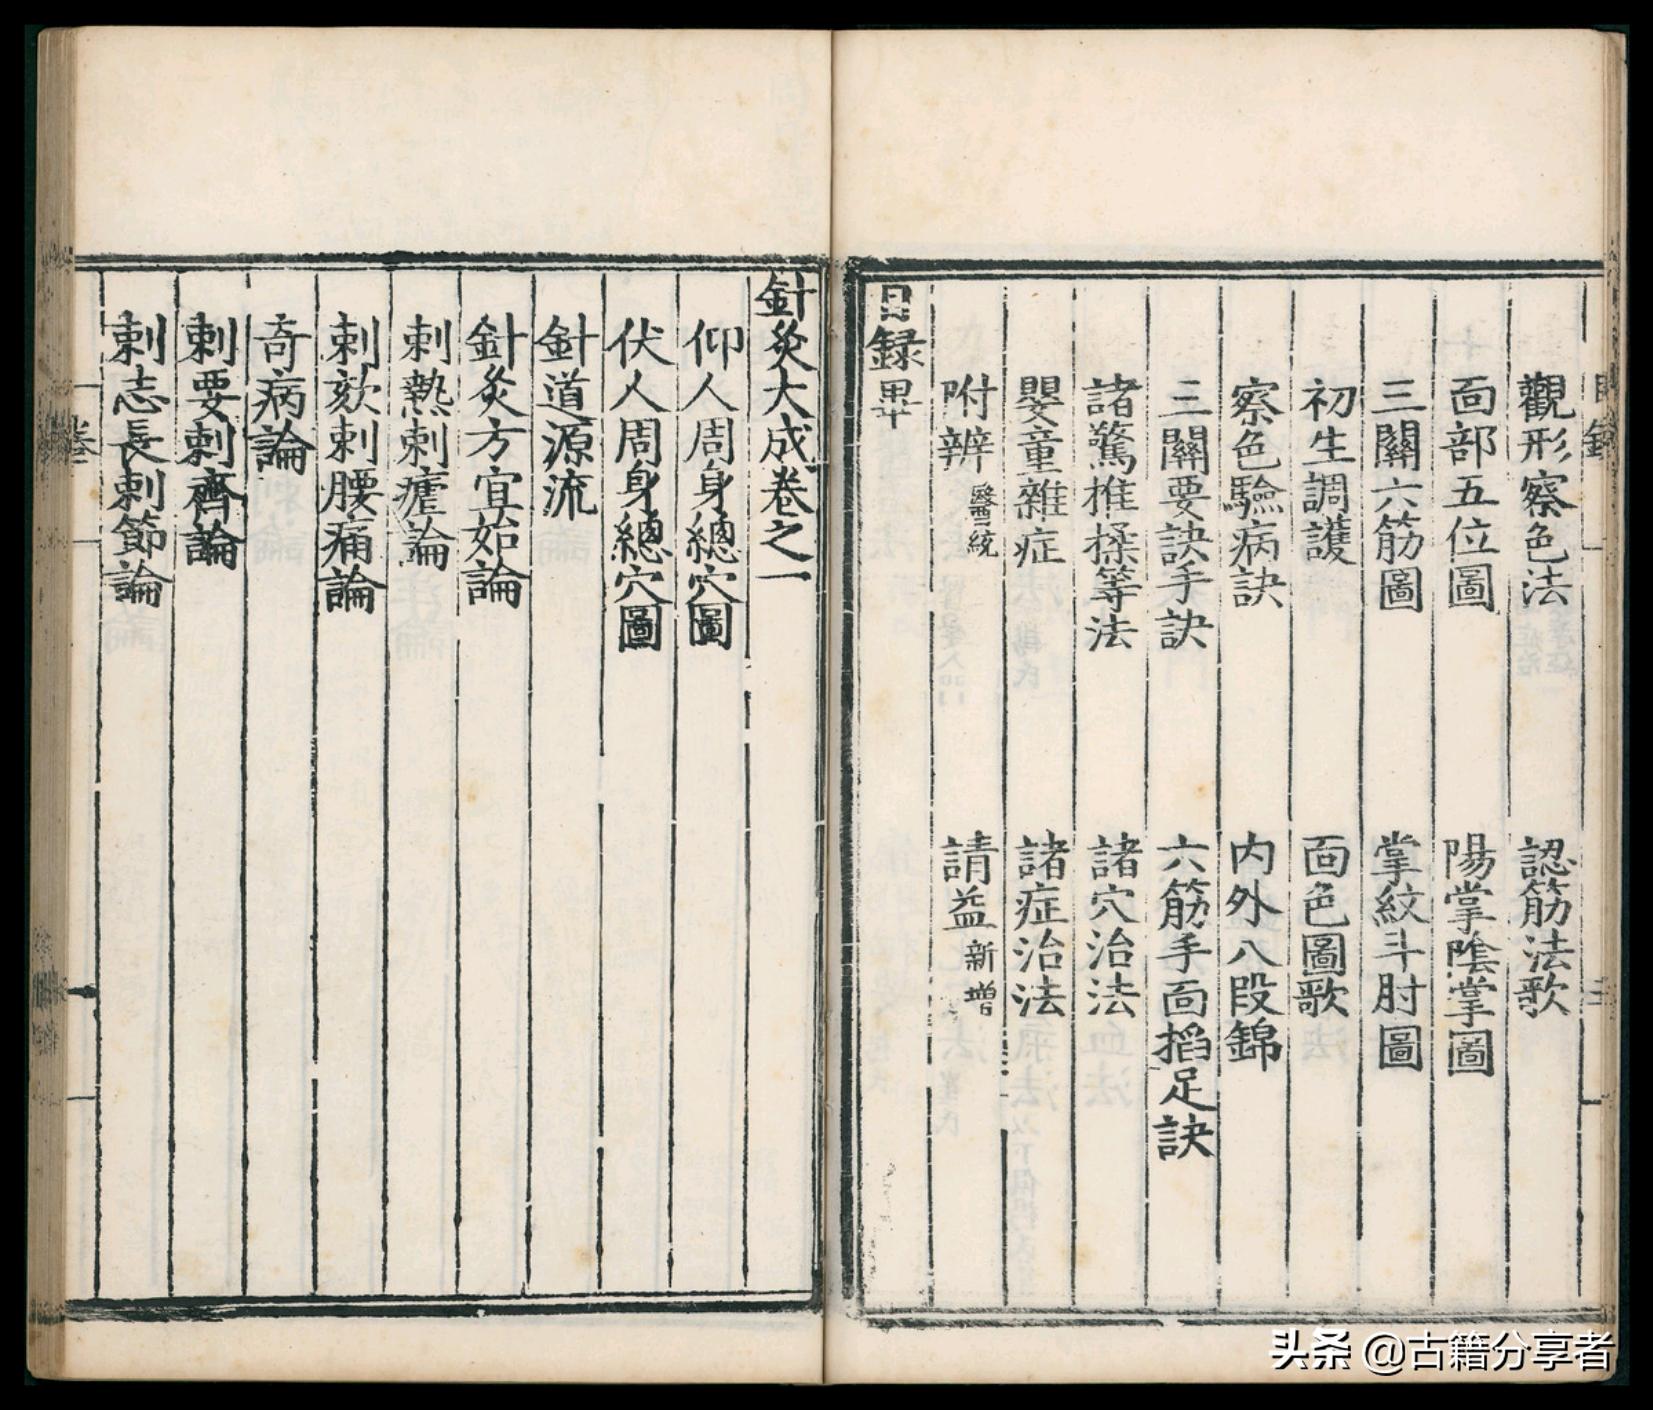 觀形察色法　認筋法歌
面部五位圖　陽掌陰掌圖
三關六筋圖　掌紋斗肘圖
初生調護　面色圖歌
察色驗病訣　内外八段錦
三關要訣手訣　六筋手面掐足訣
諸驚推揉等法　諸穴治法
嬰童雜症　諸症治法
附辨醫統　請益新增
目録畢
針灸大成卷之一
仰人周身總穴圖
伏人周身總穴圖
針道源流
針灸方宜始論
刺熱刺瘧論
刺欬刺腰痛論
奇病論
刺要刺齊論
刺志長刺節論
头条 @古籍分享者